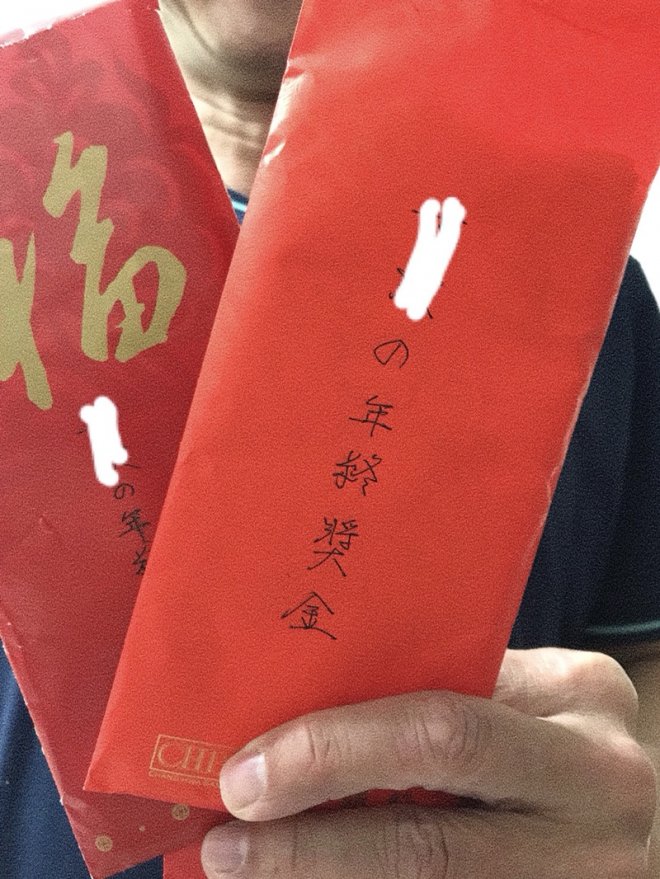 福
の年
の年終獎金
CHI